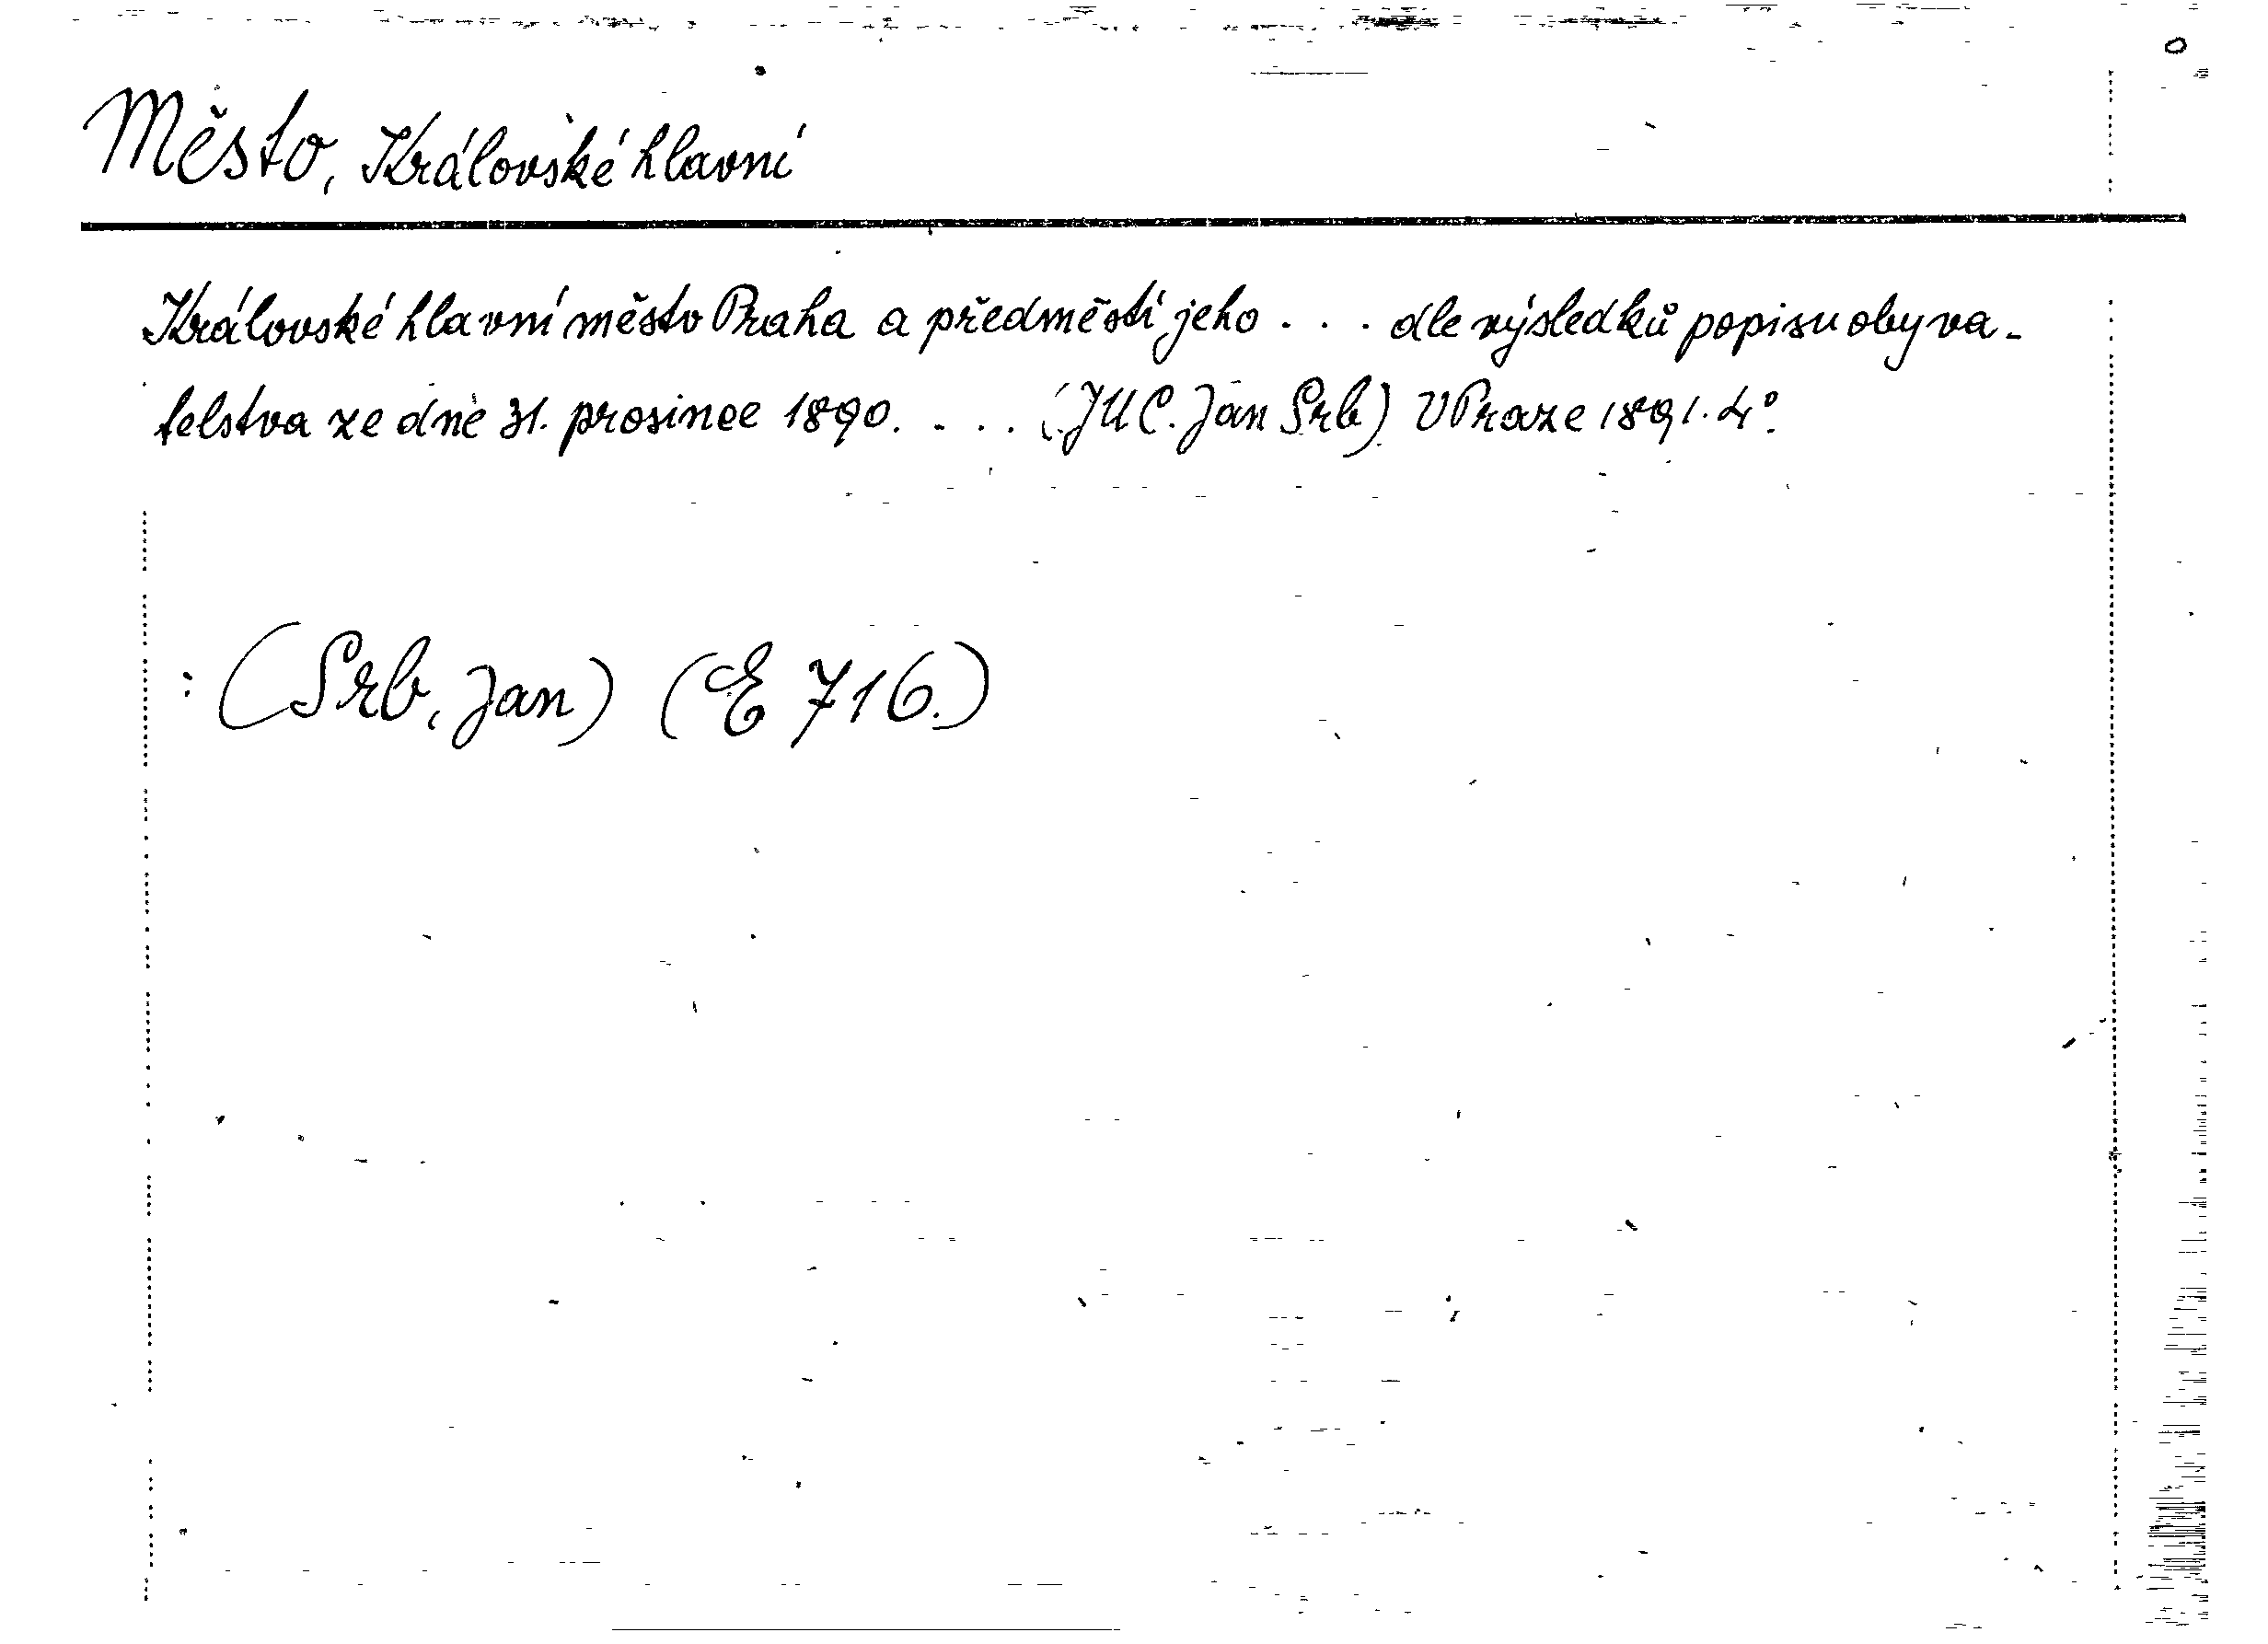 Město, Královské hlavní
Královské hlavní město Praha a předměstí jeho . . . dle výsledků popisu obyva-
telstva ze dne 31. prosince 1890. . . . (JUC. Jan Srb) V Praze 1891. 4°.
: (Srb, Jan) (E 716.)